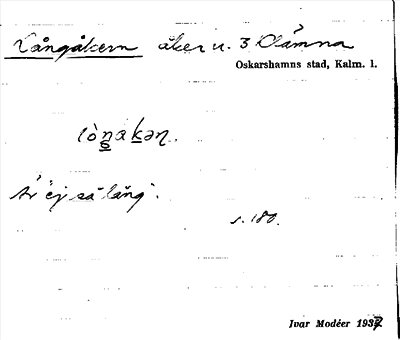 Långåkern åker u. 3 Olämna
Oskarshamns stad, Kalm. l.
Är "ej så lång".
s. 180.
Ivar Modéer 1937